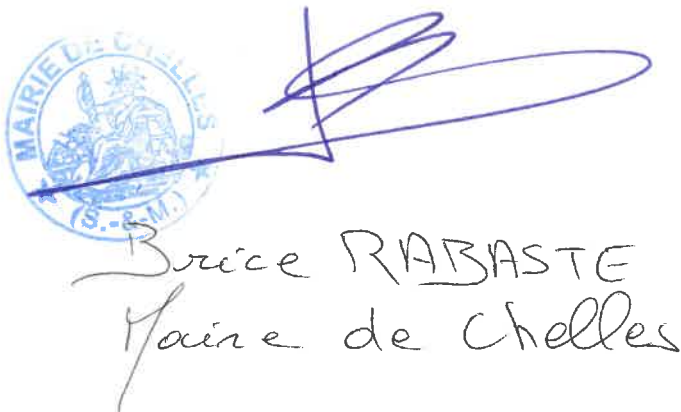 MAIRIE DE CHELLES
(S.-&-M.)
Brice RABASTE
Maire de Chelles